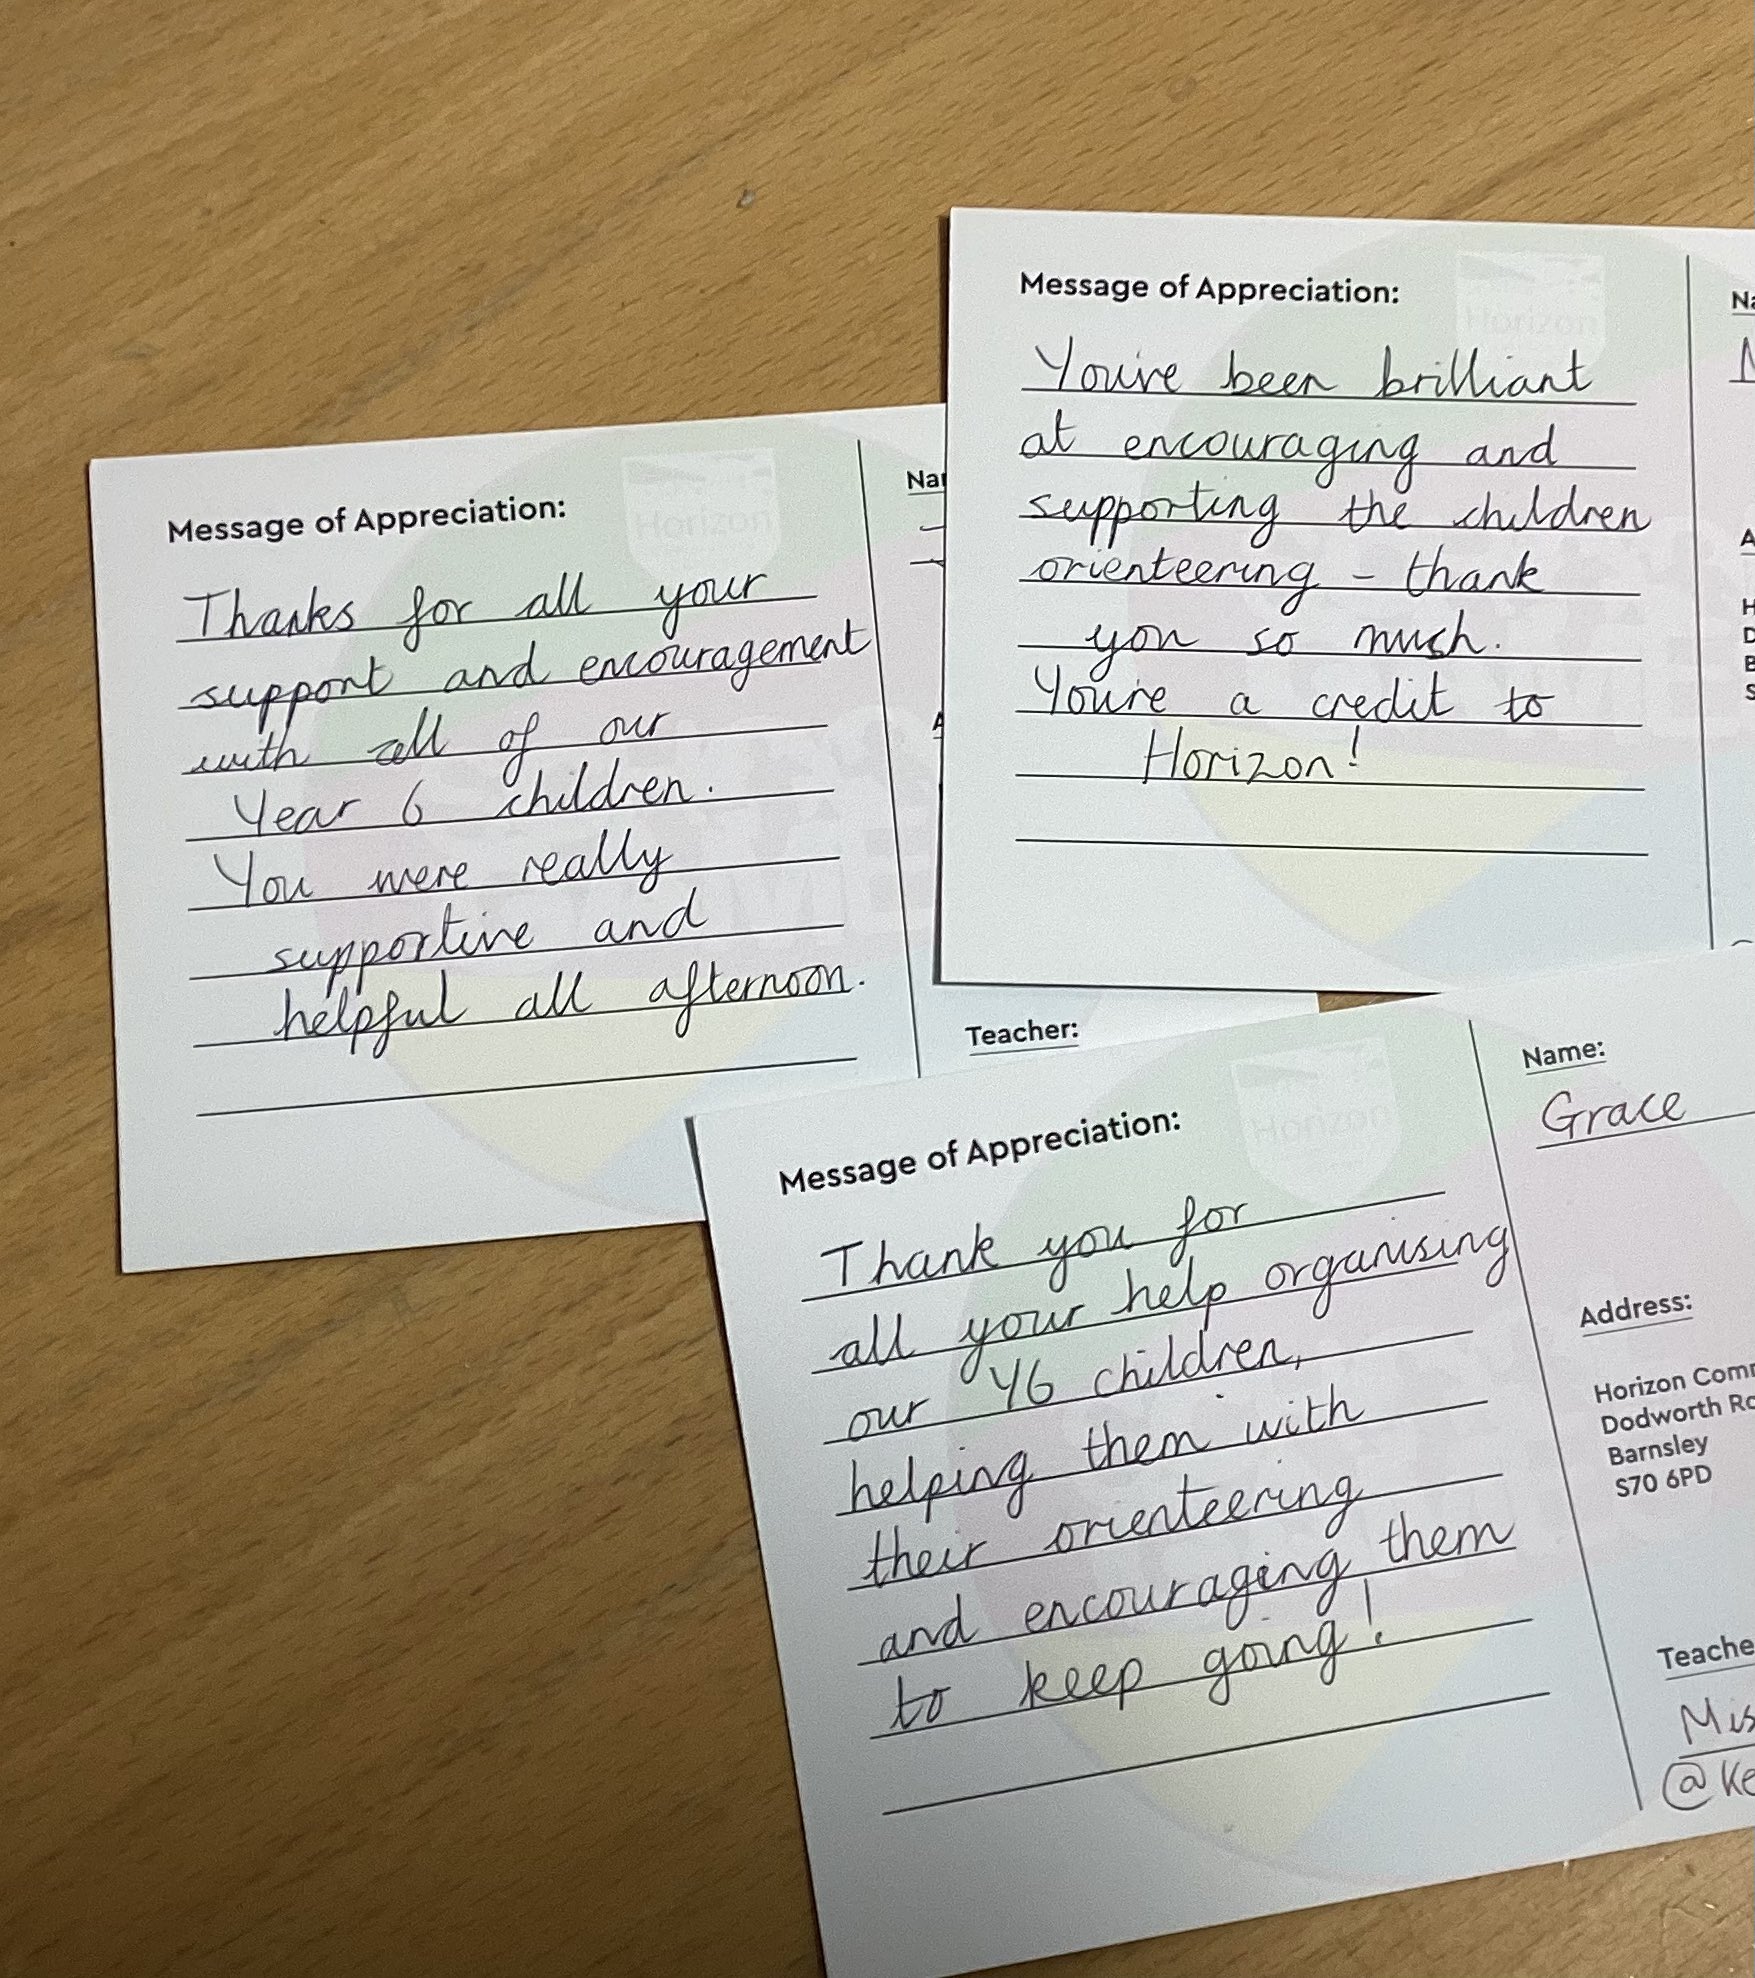 Message of Appreciation:
Thanks for all your
support and encouragement
with all of our
Year 6 children.
You were really
supportive and
helpful all afternoon.
Horizon
Teacher:
Message of Appreciation:
You've been brilliant
at encouraging and
supporting the children
orienteering - thank
you so much.
You're a credit to
Horizon!
Horizon
Message of Appreciation:
Thank you for
all your help organising
our Y6 children,
helping them with
their orienteering
and encouraging them
to keep going!
Horizon
Name:
Grace
Address:
Horizon Comm
Dodworth Ro
Barnsley
S70 6PD
Teache
Mis
@Ke